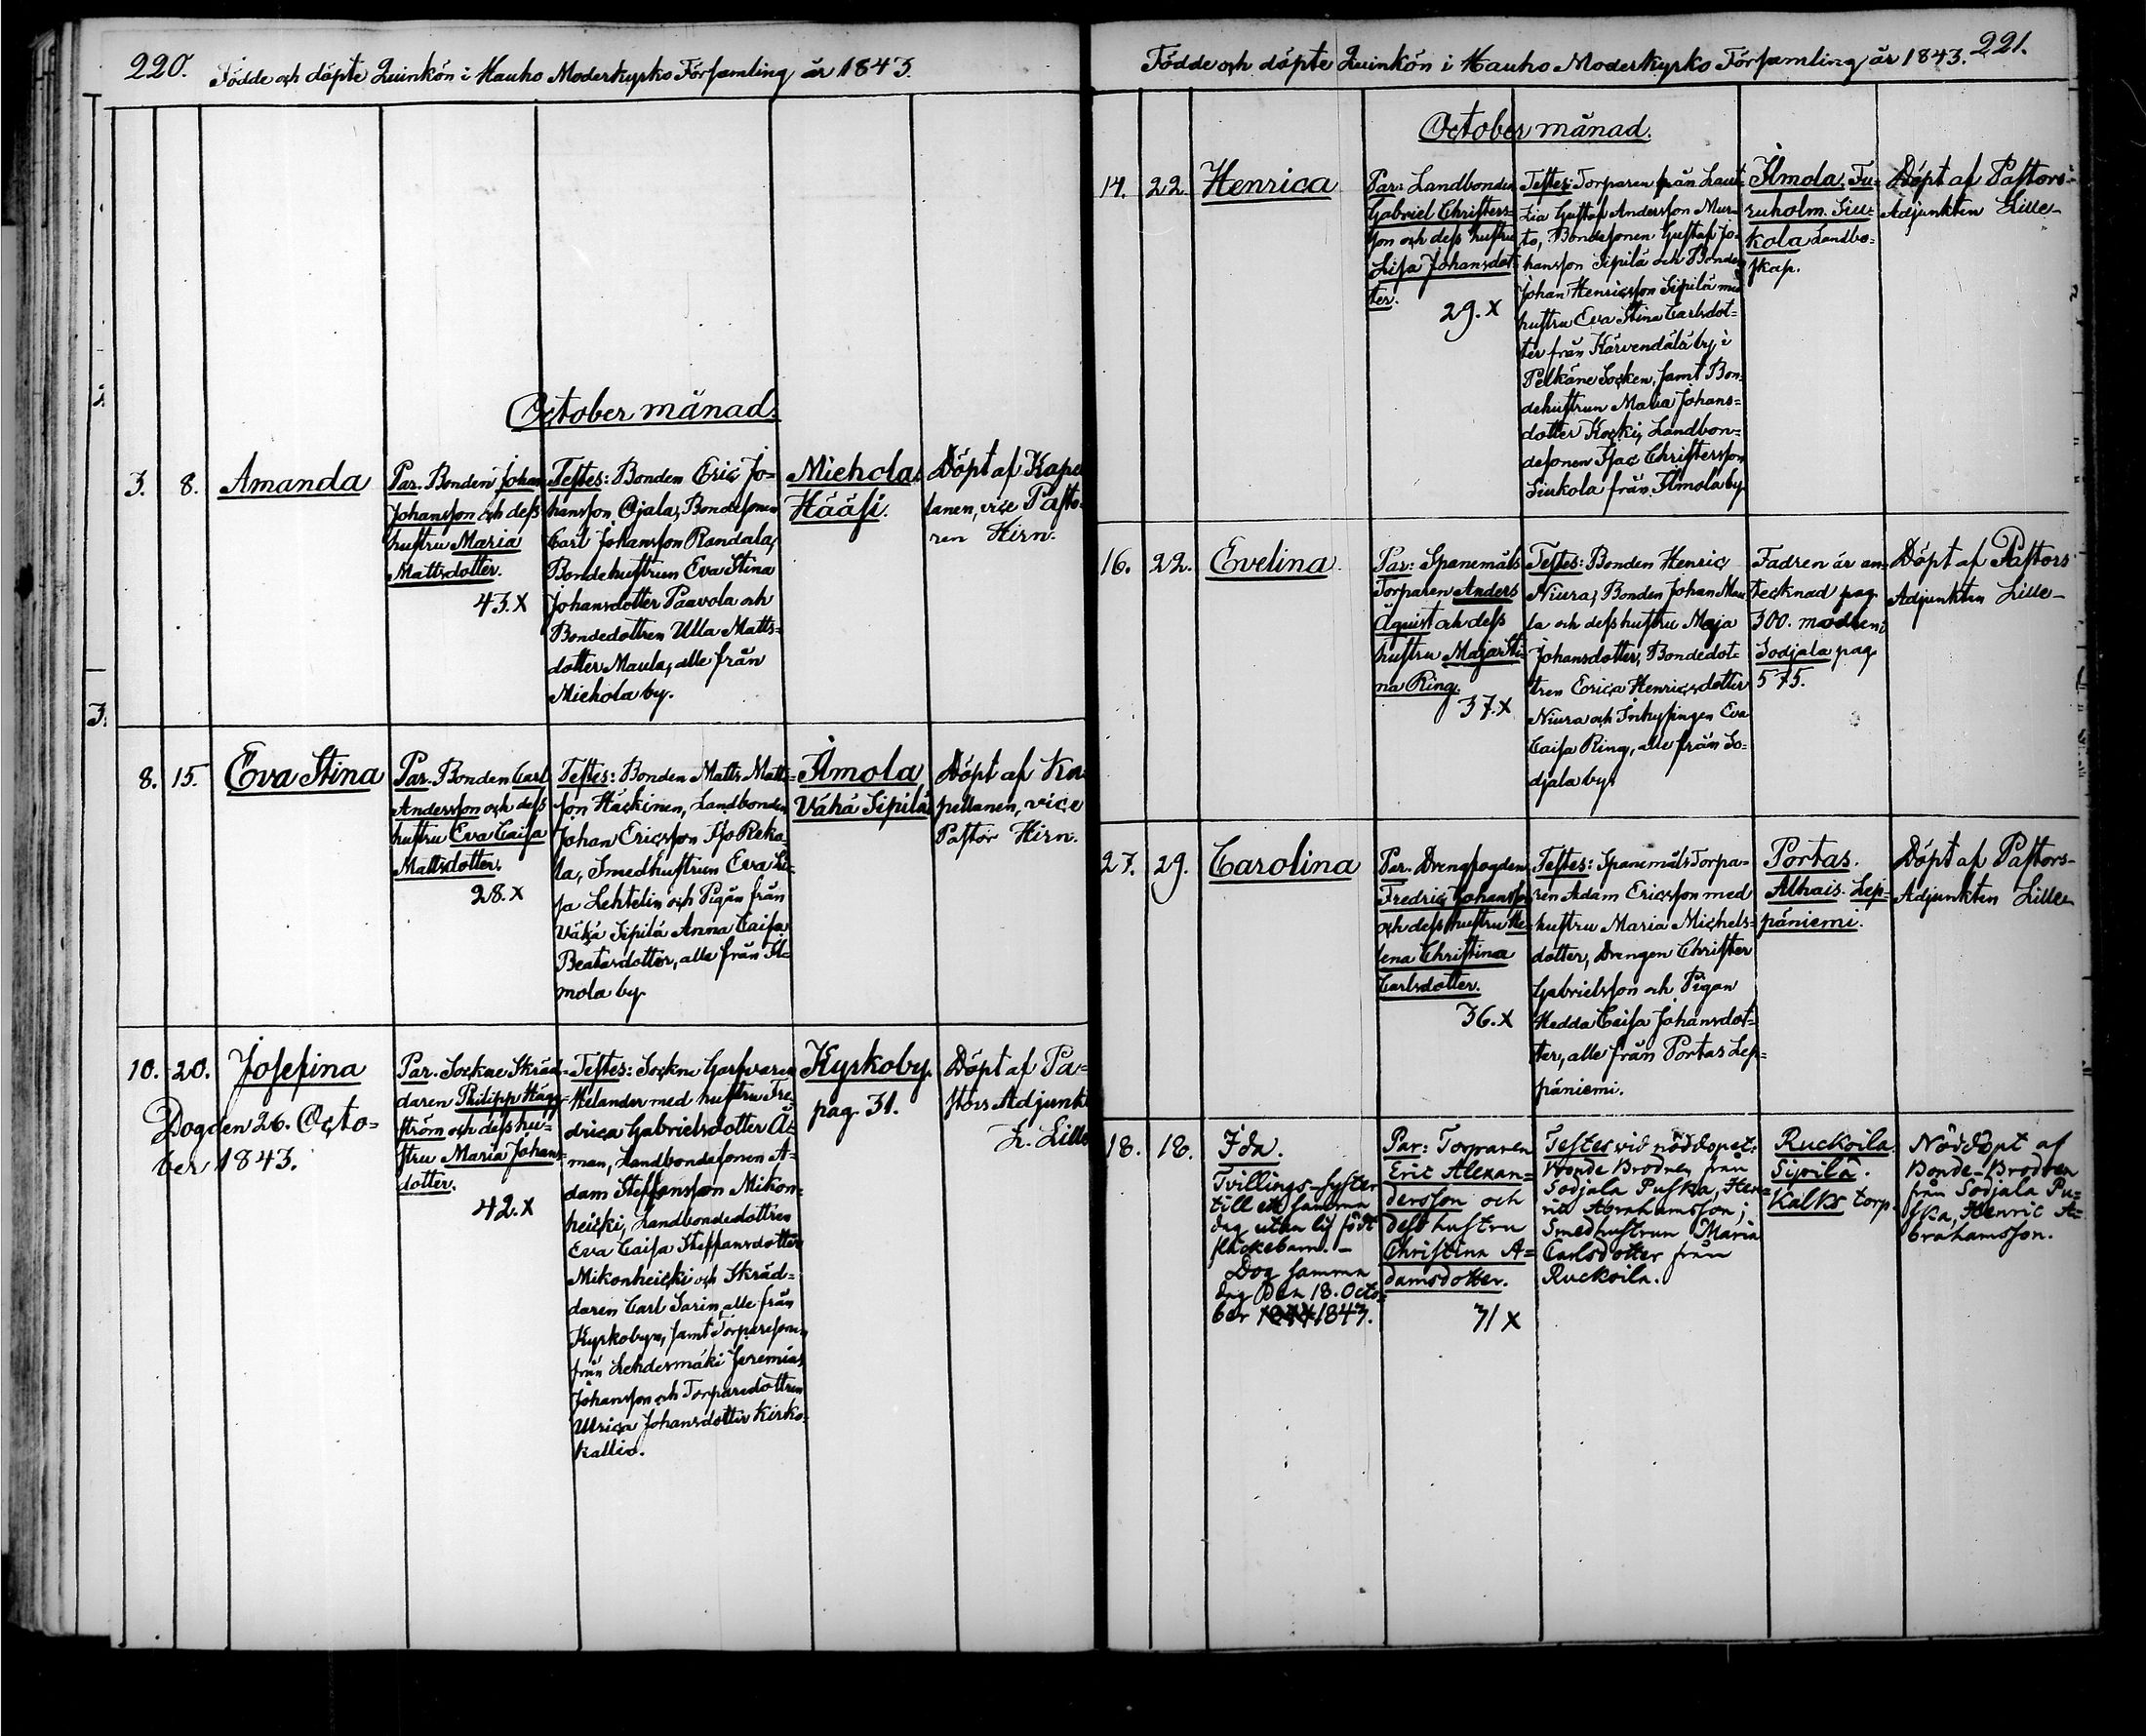 220. Födde och döpte Quinkön i Hauho Moderkyrko Församling år 1843.
October månad.
3. 8. Amanda
Par. Bonden Johan
Johansson och dess
hustru Maria
Mattsdotter.
43. X
Testes: Bonden Eric Jo-
hansson Ojala, Bondesonen
Carl Johansson Randala,
Bondehustrun Eva Stina
Johansdotter Paavola och
Bondedottren Ulla Matts-
dotter Maula, alle från
Miehola by.
Miehola
Hääsi.
Döpt af Kape
lanen, vice Pasto-
ren Hirn.
8. 15. Eva Stina
Par. Bonden Carl
Andersson och dess
hustru Eva Caisa
Mattsdotter.
28. X
Testes: Bonden Matts Matts-
son Häckinen, Landbonden
Johan Ericsson Iso Reko-
la, Smedhustrun Eva Li-
sa Lehtelin och Pigan från
Vähä Sipilä Anna Caisa
Beatasdotter, alle från Il-
mola by.
Ilmola
Vähä Sipilä
Döpt af Ka-
pellanen, vice
Pastor Hirn.
10. 20. Josefina
Dog den 26. Octo-
ber 1843.
Par. Sockne Skräd-
daren Philipp Hägg-
ström och dess hu-
stru Maria Johans-
dotter.
42. X
Testes: Sockne Garfvaren
Helander med hustru Fre-
drica Gabrielsdotter Å-
man, Landbondesonen A-
dam Steffansson Mikon-
heicki, Landbondedottren
Eva Caisa Steffansdotter
Mikonheicki och Skräd-
daren Carl Sarin, alle från
Kyrkobyn, samt Torparesonen
från Lehdesmäki Jeremias
Johansson och Torparedottren
Ulrica Johansdotter Kirko-
kallio.
Kyrkoby.
pag. 31.
Döpt af Pa-
stors Adjunkt
L. Lille
221.
Födde och döpte Quinkön i Hauho Moderkyrko Församling år 1843.
October månad.
14. 22. Henrica
Par: Landbonden
Gabriel Christers-
son och dess hustru
Lisa Johansdot-
ter.
29. X
Testes: Torparen från Laut-
sia Gustaf Andersson Mur-
to, Bondesonen Gustaf Jo-
hansson Sipilä och Bonden
Johan Henricsson Sipilä med
hustru Eva Stina Carlsdot-
ter från Kärvendälä by i
Pelkäne Socken, samt Bon-
dehustrun Maria Johans-
dotter Kocki, Landbon-
desonen Isac Christersson
Siukola från Ilmola by.
Ilmola, Fu-
ruholm. Siu-
kola Landbo-
skap.
Döpt af Pastors-
Adjunkten Lille-
16. 22. Evelina
Par: Spanemåls
Torparen Anders
Åquist och dess
hustru Maja Sti-
na Ring.
37. X
Testes: Bonden Henric
Niura, Bonden Johan Mau-
la och dess hustru Maja
Johansdotter, Bondedot-
tren Erica Henricsdotter
Niura och Inhysingen Eva
Caisa Ring, alle från So-
djala by.
Fadren är an-
tecknad pag.
300. modren i
Sodjala pag.
575.
Döpt af Pastors
Adjunkten Lille-
27. 29. Carolina
Par. Drengfogden
Fredric Johansson
och dess hustru He-
lena Christina
Carlsdotter.
36. X
Testes: Spanemåls Torpa-
ren Adam Ericsson med
hustru Maria Michels-
dotter, Drengen Christer
Gabrielsson och Pigan
Hedda Caisa Johansdot-
ter, alle från Portas Lep-
päniemi.
Portas.
Alhais. Lep-
päniemi.
Döpt af Pastors-
Adjunkten Lille-
18. 18. Ida.
Tvillings-syster
till en samma
dag utan lif född
flickebarn. -
Dog samma
dag den 18. Octo-
ber 1843.
Par: Torparen
Eric Alexan-
dersson och
dess hustru
Christina A-
damsdotter.
31 X
Testes vid nöddopet:
Bonde Brodren från
Sodjala Puska, Hen-
ric Abrahamsson;
Smedhustrun Maria
Carlsdotter från
Ruckoila.
Ruckoila
Sipilä.
Kalks torp.
Nöddöpt af
Bonde-Brodren
från Sodjala Pu-
ska, Henric A-
brahamsson.